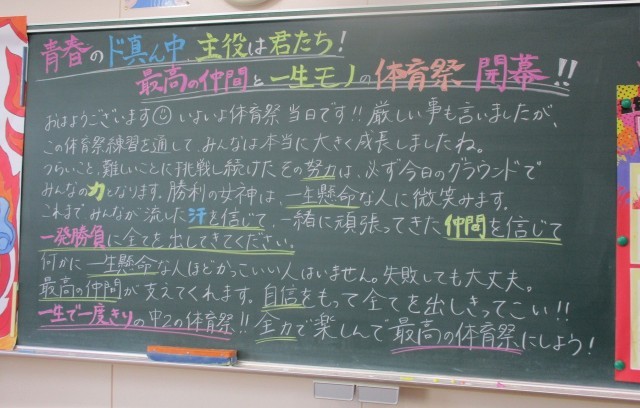 青春のド真ん中、主役は君たち!
最高の仲間と一生モノの体育祭 開幕!!
おはようございます☺ いよいよ体育祭当日です!! 厳しい事も言いましたが、
この体育祭練習を通して、みんなは本当に大きく成長しましたね。
つらいこと、難しいことに挑戦し続けたその努力は、必ず今日のグラウンドで
みんなの力となります。勝利の女神は、一生懸命な人に微笑みます。
これまでみんなが流した汗を信じて、一緒に頑張ってきた仲間を信じて
一発勝負に全てを出してきてください。
何かに一生懸命な人ほどかっこいい人はいません。失敗しても大丈夫。
最高の仲間が支えてくれます。自信をもって全てを出しきってこい!!
一生で一度きりの中2の体育祭!! 全力で楽しんで"最高の体育祭にしよう!